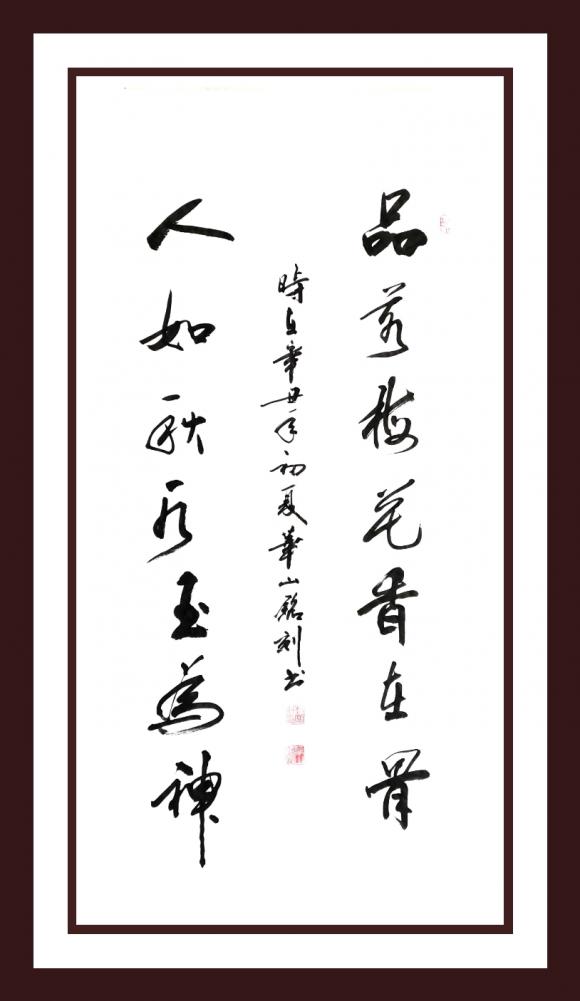 品若梅花香在骨
人如秋水玉為神
時在辛丑年初夏華山銘刻書